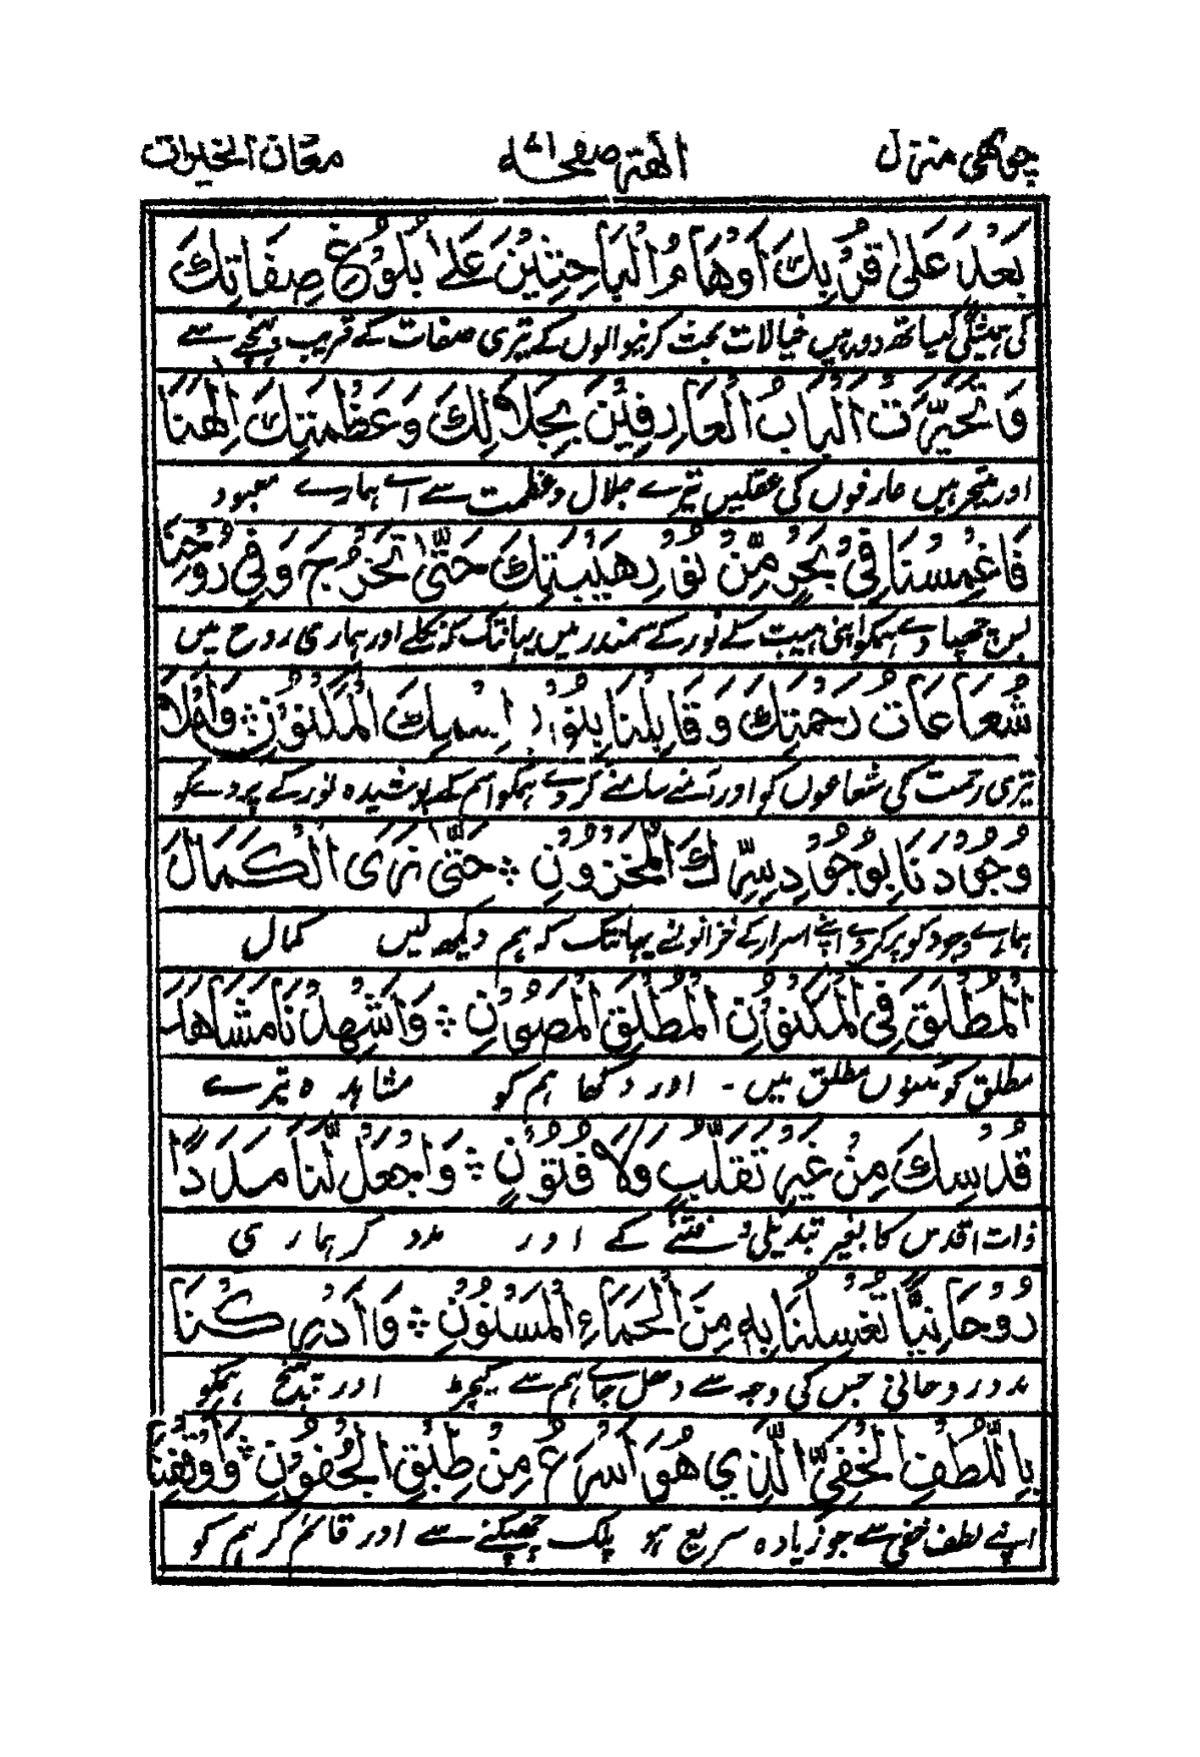 چوتھی منزل صفحہ ۸۱ معان الخیرات
بَعْدَ عَلٰى قُرْبِكَ اَوْهَامُ الْبَاحِثِيْنَ عَلٰى بُلُوْغِ صِفَاتِكَ
دور ہیں خیالات بحث کرنیوالوں کے تیری صفات کے قریب پہنچنے سے
وَتَحَيَّرَتْ اَلْبَابُ الْعَارِفِيْنَ بِجَلَالِكَ وَعَظْمَتِكَ اِلٰهَنَا
اور متحیر ہیں عارفوں کی عقلیں تیرے جلال و عظمت سے اے ہمارے معبود
فَاغْمِسْنَا فِيْ بَحْرٍ مِّنْ نُوْرِ هَيْبَتِكَ حَتّٰى تَخْرُجَ وَفِيْ رُوْحِنَا
بس چھپا دے ہمکو اپنی ہیبت کے نور کے سمندر میں یہانتک کہ نکلے اور ہماری روح میں
شُعَاعَاتُ رَحْمَتِكَ وَقَابِلْنَا بِنُوْرِ اِسْمِكَ الْمَكْنُوْنِ وَامْلَا
تیری رحمت کی شعاعوں کو اور سامنے کردے ہمکو اسم کے پوشیدہ نور کے
وُجُوْدَنَا بِوُجُوْدِ سِرِّكَ الْمَخْزُوْنِ حَتّٰى نَرَى الْكَمَالَ
ہمارے وجود کو پر کردے اپنے اسرار کے خزانوں یہانتک کہ ہم دیکھ لیں کمال
الْمُطْلَقَ فِي الْمَكْنُوْنِ الْمُطْلَقِ الْمَصُوْنِ وَاَشْهِدْنَا مَشَاهِدَ
مطلق کو مکنون مطلق میں ۔ اور دکھا ہم کو مشاہدہ تیرے
قُدْسِكَ مِنْ غَيْرِ تَقَلُّبٍ وَلَا فُتُوْنٍ وَاجْعَلْ لَّنَا مَدَدًا
ذات اقدس کا بغیر تبدیلی و فتنے کے اور مدد کر ہماری
رُوْحَانِيًّا تَغْسِلُنَا بِهٖ مِنَ الْحَمَاءِ الْمَسْنُوْنِ وَاَدْرِكْنَا
مدد روحانی جس کی وجہ سے دھل جائے ہم سے کیچڑ اور ہمکو
بِاللُّطْفِ الْخَفِيِّ الَّذِيْ هُوَ اَسْرَعُ مِنْ طَبَقِ الْجُفُوْنِ وَاَوْقِفْنَا
اپنے لطف خفی سے جو زیادہ سریع ہو پلک جھپکنے سے اور قائم کر ہم کو